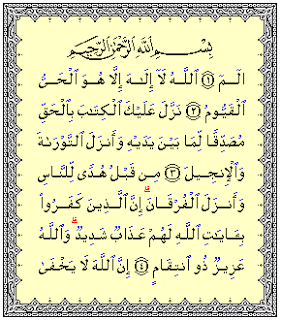 بِسْمِ ٱللَّهِ ٱلرَّحْمَٰنِ ٱلرَّحِيمِ
الٓمٓ ١ ٱللَّهُ لَآ إِلَٰهَ إِلَّا هُوَ ٱلْحَىُّ
ٱلْقَيُّومُ ٢ نَزَّلَ عَلَيْكَ ٱلْكِتَٰبَ بِٱلْحَقِّ
مُصَدِّقًا لِّمَا بَيْنَ يَدَيْهِ وَأَنزَلَ ٱلتَّوْرَىٰةَ
وَٱلْإِنجِيلَ ٣ مِن قَبْلُ هُدًى لِّلنَّاسِ
وَأَنزَلَ ٱلْفُرْقَانَ ۗ إِنَّ ٱلَّذِينَ كَفَرُوا۟
بِـَٔايَٰتِ ٱللَّهِ لَهُمْ عَذَابٌ شَدِيدٌ ۗ وَٱللَّهُ
عَزِيزٌ ذُو ٱنتِقَامٍ ٤ إِنَّ ٱللَّهَ لَا يَخْفَىٰ